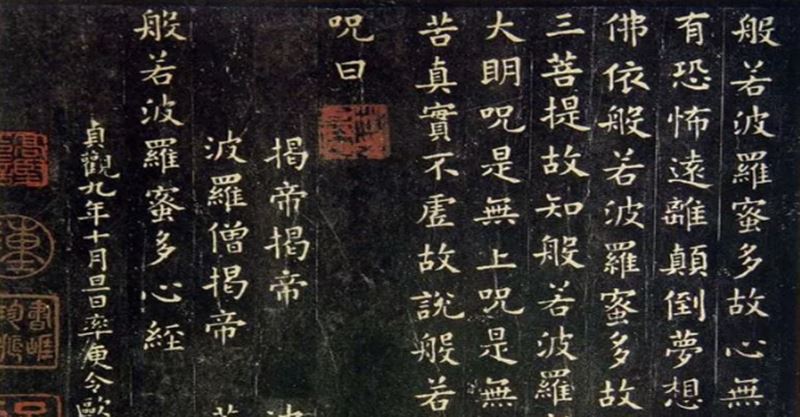 般若波羅蜜多故心無
有恐怖遠離顛倒夢想
佛依般若波羅蜜多故
三菩提故知般若波羅
大明呪是無上呪是無
苦真實不虛故說般若
呪曰
揭帝揭帝
波羅僧揭帝
般若波羅蜜多心經
貞觀九年十月旦日率更令歐